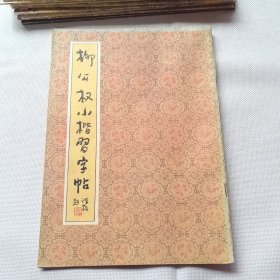 柳公权小楷習字帖